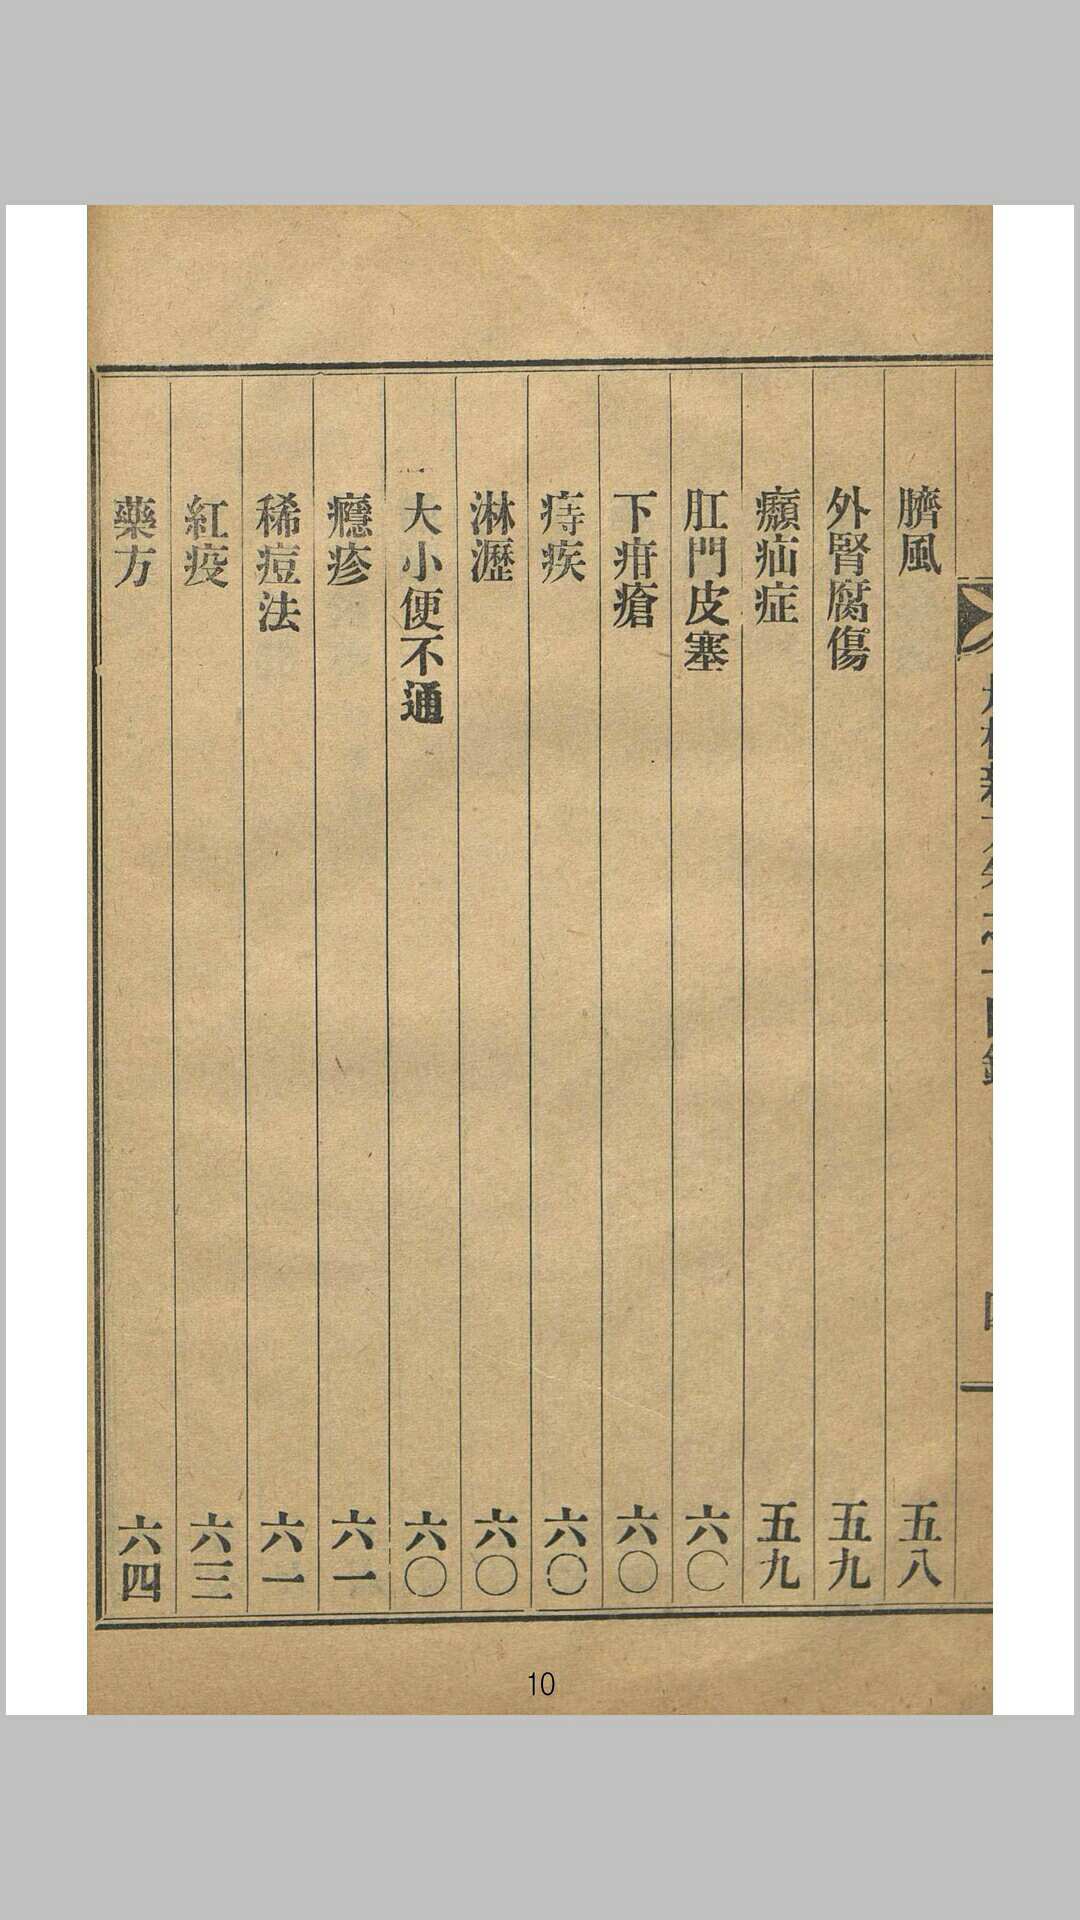 臍風 五八
外腎腐傷 五九
㿗疝症 五九
肛門皮塞 六〇
下疳瘡 六〇
痔疾 六〇
淋瀝 六〇
大小便不通 六〇
癮疹 六一
稀痘法 六一
紅疫 六三
藥方 六四
10